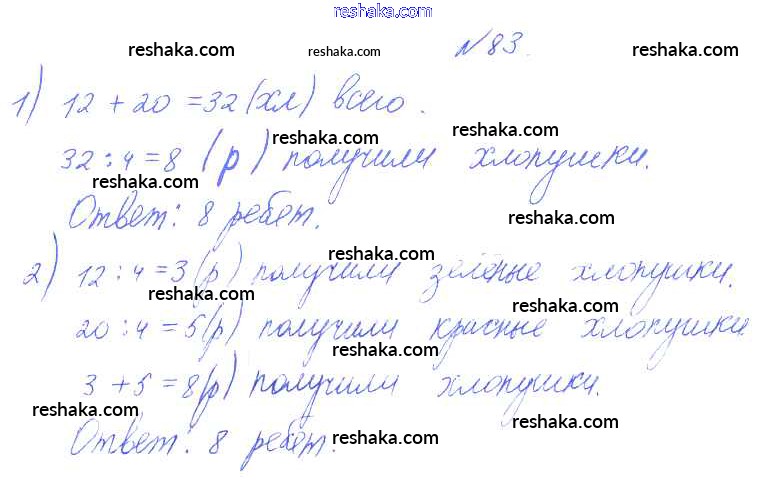 reshaka.com
reshaka.com reshaka.com №83. reshaka.com
1) 12 + 20 = 32 (хл) всего.
reshaka.com reshaka.com
32 : 4 = 8 (р) получили хлопушки.
reshaka.com
Ответ: 8 ребят.
reshaka.com reshaka.com
2) 12 : 4 = 3 (р) получили зелёные хлопушки.
reshaka.com reshaka.com
20 : 4 = 5 (р) получили красные хлопушки
reshaka.com
3 + 5 = 8 (р) получили хлопушки.
reshaka.com reshaka.com
Ответ: 8 ребят.
reshaka.com